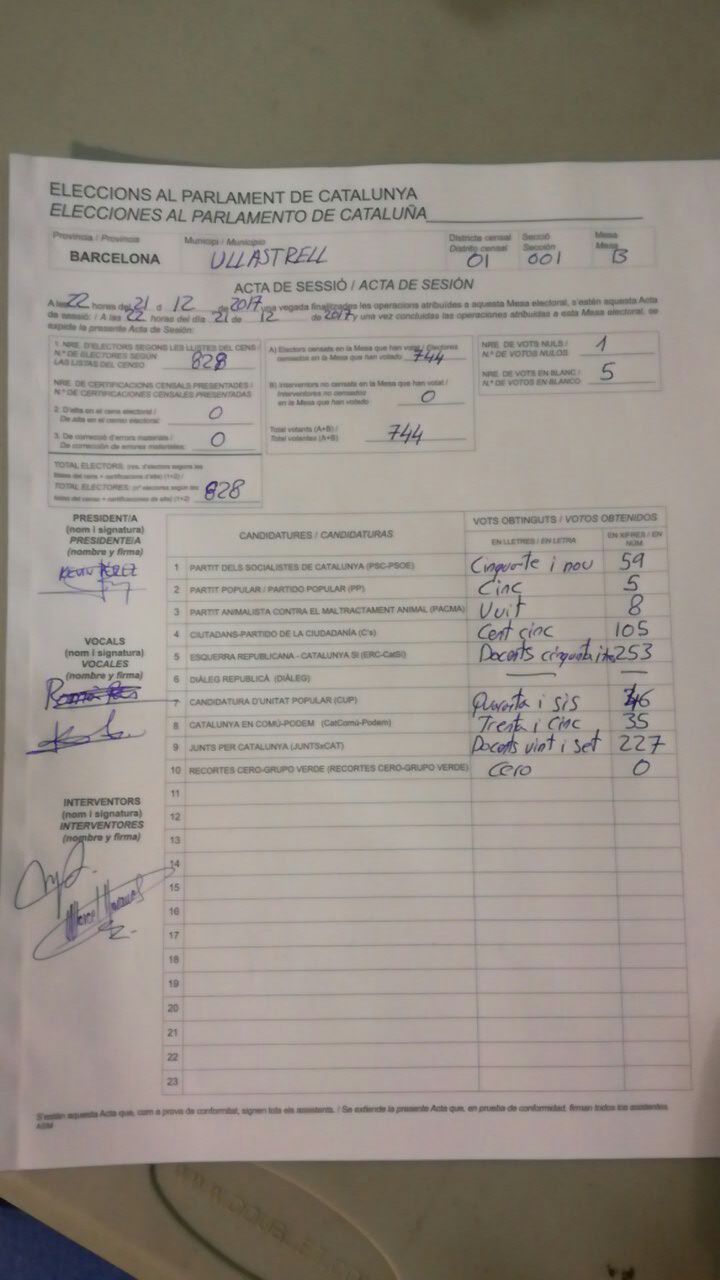 ELECCIONS AL PARLAMENT DE CATALUNYA
ELECCIONES AL PARLAMENTO DE CATALUÑA
Província / Provincia Municipi / Municipio Districte censal Secció Mesa
Distrito censal Sección Mesa
BARCELONA ULLASTRELL 01 001 B
ACTA DE SESSIÓ / ACTA DE SESIÓN
A les 22 hores del 21 d 12 de 2017 una vegada finalitzades les operacions atribuïdes a aquesta Mesa electoral, s'estén aquesta Acta
de sessió: / A las 22 horas del día 21 de 12 de 2017 y una vez concluidas las operaciones atribuidas a esta Mesa electoral, se
expide la presente Acta de Sesión:
1. NRE. D'ELECTORS SEGONS LES LLISTES DEL CENS /
N.º DE ELECTORES SEGÚN
LAS LISTAS DEL CENSO 828
NRE. DE CERTIFICACIONS CENSALS PRESENTADES /
N.º DE CERTIFICACIONES CENSALES PRESENTADAS
2. D'alta en el cens electoral /
De alta en el censo electoral: 0
3. De correcció d'errors materials /
De corrección de errores materiales: 0
TOTAL ELECTORS: (nre. d'electors segons les
llistes del cens + certificacions d'alta) (1+2) /
TOTAL ELECTORES: (nº electores según las
listas del censo + certificaciones de alta) (1+2) 828
A) Electors censats en la Mesa que han votat / Electores
censados en la Mesa que han votado 744
B) Interventors no censats en la Mesa que han votat /
Interventores no censados
en la Mesa que han votado 0
Total votants (A+B) /
Total votantes (A+B) 744
NRE. DE VOTS NULS /
N.º DE VOTOS NULOS 1
NRE. DE VOTS EN BLANC /
N.º DE VOTOS EN BLANCO 5
PRESIDENT/A
(nom i signatura)
PRESIDENTE/A
(nombre y firma)
KEVIN PÉREZ
VOCALS
(nom i signatura)
VOCALES
(nombre y firma)
INTERVENTORS
(nom i signatura)
INTERVENTORES
(nombre y firma)
CANDIDATURES / CANDIDATURAS VOTS OBTINGUTS / VOTOS OBTENIDOS
EN LLETRES / EN LETRA EN XIFRES / EN NÚM.
1 PARTIT DELS SOCIALISTES DE CATALUNYA (PSC-PSOE) Cinquanta i nou 59
2 PARTIT POPULAR / PARTIDO POPULAR (PP) Cinc 5
3 PARTIT ANIMALISTA CONTRA EL MALTRACTAMENT ANIMAL (PACMA) Vuit 8
4 CIUTADANS-PARTIDO DE LA CIUDADANÍA (C's) Cent cinc 105
5 ESQUERRA REPUBLICANA - CATALUNYA SÍ (ERC-CatSí) Docents cinquanta 253
6 DIÀLEG REPUBLICÀ (DIÀLEG) — —
7 CANDIDATURA D'UNITAT POPULAR (CUP) Quaranta i sis 46
8 CATALUNYA EN COMÚ-PODEM (CatComú-Podem) Trenta i Cinc 35
9 JUNTS PER CATALUNYA (JUNTSxCAT) Docents vint i set 227
10 RECORTES CERO-GRUPO VERDE (RECORTES CERO-GRUPO VERDE) Cero 0
11
12
13
14
15
16
17
18
19
20
21
22
23
S'estén aquesta Acta que, com a prova de conformitat, signen tots els assistents. / Se extiende la presente Acta que, en prueba de conformidad, firman todos los asistentes.